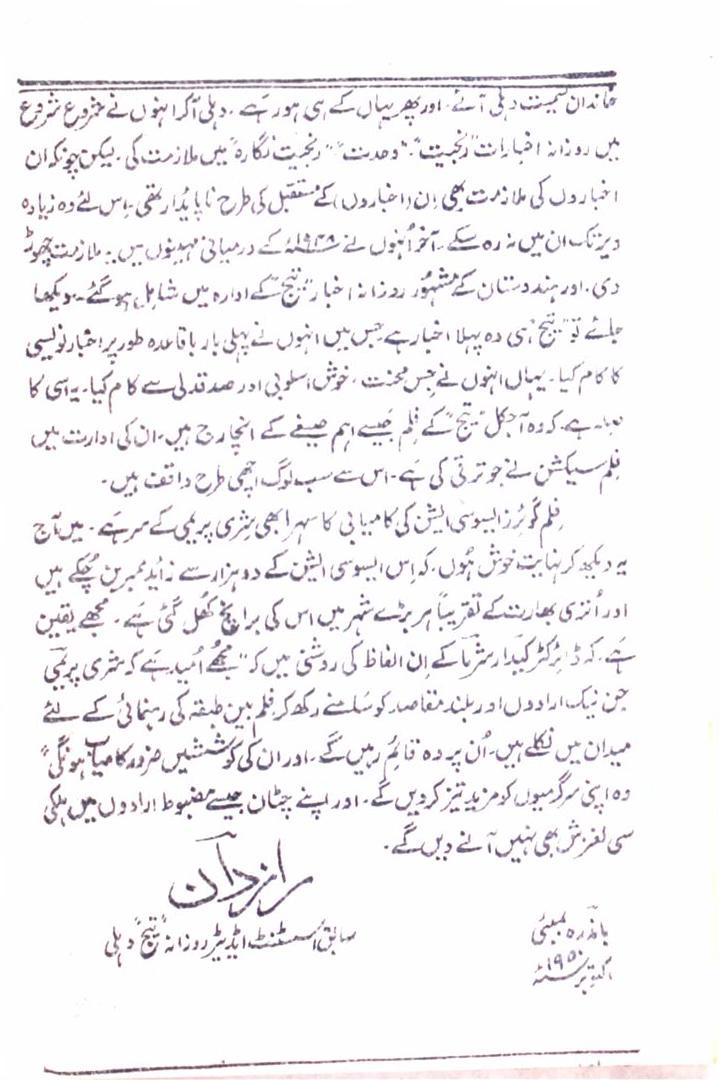 خاندان سمیت دہلی آئے۔ اور پھر یہاں کے ہی ہو رہے۔ دہلی آکر انہوں نے شروع شروع
میں روزانہ اخبارات "رنجیت"۔ "وحدت" "رنجیت نگارہ" میں ملازمت کی۔ لیکن چونکہ ان
اخباروں کی ملازمت بھی اِن (اخباروں) کے مستقبل کی طرح ناپائیدار تھی۔ اِس لئے وہ زیادہ
دیر تک ان میں نہ رہ سکے۔ آخر اُنہوں نے ۱۹۴۸ء کے درمیانی مہینوں میں یہ ملازمت چھوڑ
دی۔ اور ہندوستان کے مشہور روزانہ اخبار "تیج" کے ادارہ میں شامل ہوگئے۔ دیکھا
جائے تو "تیج" ہی وہ پہلا اخبار ہے جس میں انہوں نے پہلی بار باقاعدہ طور پر اخبار نویسی
کا کام کیا۔ یہاں انہوں نے جس محنت۔ خوش اسلوبی اور صدق دلی سے کام کیا۔ یہ اسی کا
ہے۔ کہ وہ آجکل "تیج" کے فِلم جیسے اہم صیغے کے انچارج ہیں۔ ان کی ادارت میں
فِلم سیکشن نے جو ترقی کی ہے۔ اس سے سب لوگ اچھی طرح واقف ہیں۔
فِلم گوئرز ایسوسی ایشن کی کامیابی کا سہرا بھی شری پریمی کے سر ہے۔ میں آج
یہ دیکھ کر نہایت خوش ہوں۔ کہ اِس ایسوسی ایشن کے دو ہزار سے زائد ممبر بن چُکے ہیں
اور اُتری بھارت کے تقریباً ہر بڑے شہر میں اس کی برانچ کُھل گئی ہے۔ مجھے یقین
ہے۔ کہ ڈائرکٹر کیدار شرما کے اِن الفاظ کی روشنی میں کہ "مجھے اُمید ہے کہ شری پریمی
جن نیک ارادوں اور بلند مقاصد کو سامنے رکھ کر فلم بین طبقہ کی رہنمائی کے لئے
میدان میں نکلے ہیں۔ اُن پر وہ قائم رہیں گے۔ اور ان کی کوششیں ضرور کامیاب ہونگی"
وہ اپنی سرگرمیوں کو مزید تیز کردیں گے۔ اور اپنے چٹان جیسے مضبوط اِرادوں میں ہلکی
سی لغزش بھی نہیں آنے دیں گے۔
رازدآن
سابق اسسٹنٹ ایڈیٹر روزانہ "تیج" دہلی
باندرہ بمبئی
اکتوبر ۱۹۵۰ء